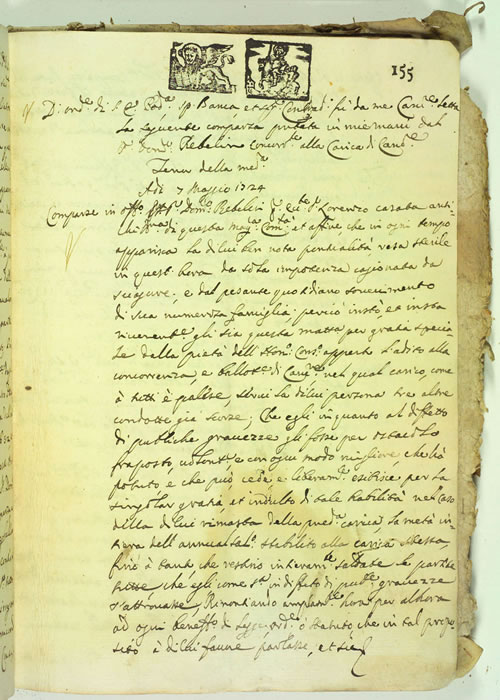 155
D'ord.e di S. E. Pod.à, sp. Banca, et sp. Contrad.i fù da me Canc.re letta
la seguente comparsa portata in mie mani dal
Dom.co Rebelin concorr.te alla Carica di Canc.re
Tenor della med.a
Adì 7 Maggio 1724
Comparse in off.o Dom.co Rebelin q. Lorenzo
di questa mag.ca Com.tà, et affine che in ogni tempo
apparisca la di lui ben nota pontialità resa sterile
in quest'hora da sola impotenza cagionata da
sciagure, e dal pesante quotidiano sovenimento
di sua numerosa famiglia, perciò instò ed insta
riverente.te gli sia questa matta per gratia specia-
le dalla pietà dell' Hon. Cons.o apperto l'adito alla
concorrenza, e ballott.e di Canc.re nel qual carico, come
à tutti è palese servì la di lui persona tre altre
condotte già scorse; Che egli in quanto al diffetto
di publiche gravezze gli fosse per ostacolo
fraposto, volont.e e con ogni modo migliore, che hà
potuto e che può, cede, e liberam.te esibisce per la
singolar gratia, et indulto di tale habilità nel caso
della di lui rimasta della pred.a carica, la metà in-
tiera dell'annual sal.o stabilito alla carica stessa,
fino à tanto che restino interam.te saldate le partite
tutte, che egli come s.a in diffetto di pub.e gravezze
s'attrovasse, Rinontiando amplam.te hora per alhora
ad ogni benef.o di legge, ord.e ò statuto che in tal propo-
sito à di lui favore parlasse, et sic